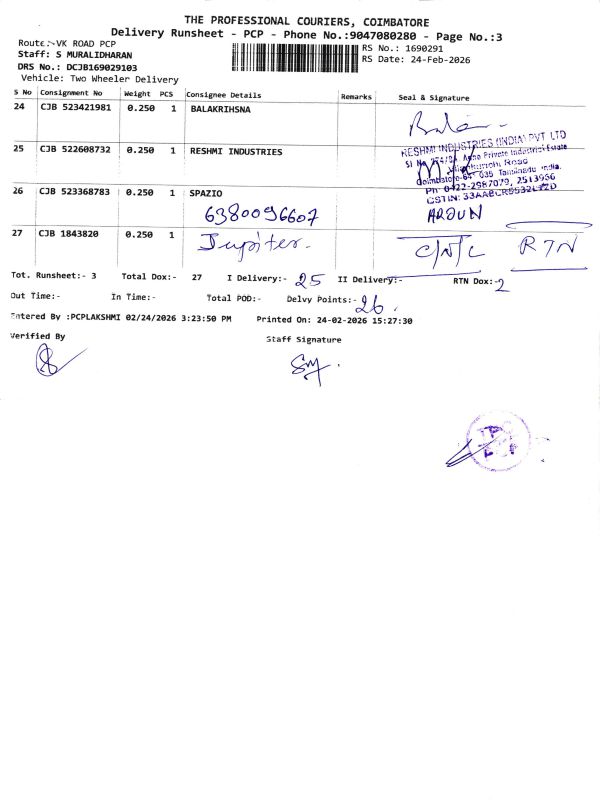 THE PROFESSIONAL COURIERS, COIMBATORE
Delivery Runsheet - PCP - Phone No.:9047080280 - Page No.:3
Route:-VK ROAD PCP
RS No.: 1690291
Staff: S MURALIDHARAN
RS Date: 24-Feb-2026
DRS No.: DCJB169029103
Vehicle: Two Wheeler Delivery
S No Consignment No Weight PCS Consignee Details Remarks Seal & Signature
24 CJB 523421981 0.250 1 BALAKRIHSNA
Bala
25 CJB 522608732 0.250 1 RESHMI INDUSTRIES
RESHMI INDUSTRIES (INDIA) PVT LTD
Private Industrial Estate
Road
Coimbatore-641 035 Tamilnadu India.
Ph 0422-2987079, 2513956
GSTIN:
26 CJB 523368783 0.250 1 SPAZIO
6380096607 AROUN
27 CJB 1843820 0.250 1 Jupiter. C/N/L RTN
Tot. Runsheet:- 3 Total Dox:- 27 I Delivery:- 25 II Delivery:- RTN Dox:-2
Out Time:- In Time:- Total POD:- Delvy Points:- 26.
Entered By :PCPLAKSHMI 02/24/2026 3:23:50 PM Printed On: 24-02-2026 15:27:30
Verified By Staff Signature